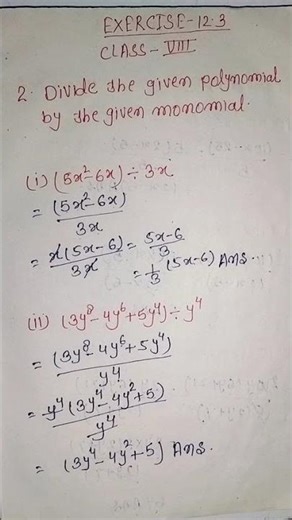 EXERCISE-12.3
CLASS-VIII
2. Divide the given polynomial
by the given monomial.
(i) (5x²-6x) ÷ 3x
= (5x²-6x)/3x
= x(5x-6)/3x = 5x-6/3
= 1/3 (5x-6) Ans.
(ii) (3y⁸-4y⁶+5y⁴) ÷ y⁴
= (3y⁸-4y⁶+5y⁴)/y⁴
= y⁴(3y⁴-4y²+5)/y⁴
= (3y⁴-4y²+5) Ans.